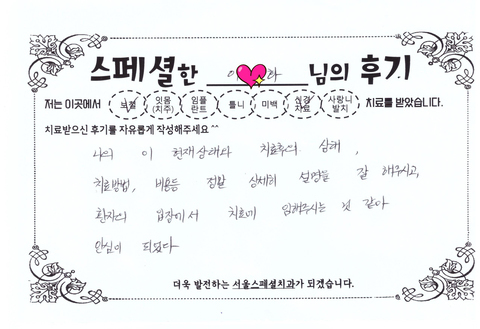 스페셜한 이 라 님의 후기
저는 이곳에서 보철 잇몸(치주) 임플란트 틀니 미백 신경치료 사랑니발치 치료를 받았습니다.
치료받으신 후기를 자유롭게 작성해주세요^^
나의 이 현재상태와 치료후의 상태,
치료방법, 비용등 정말 상세히 설명을 잘 해주시고,
환자의 입장에서 치료에 임해주시는 것 같아
안심이 되었다
더욱 발전하는 서울스페셜치과가 되겠습니다.